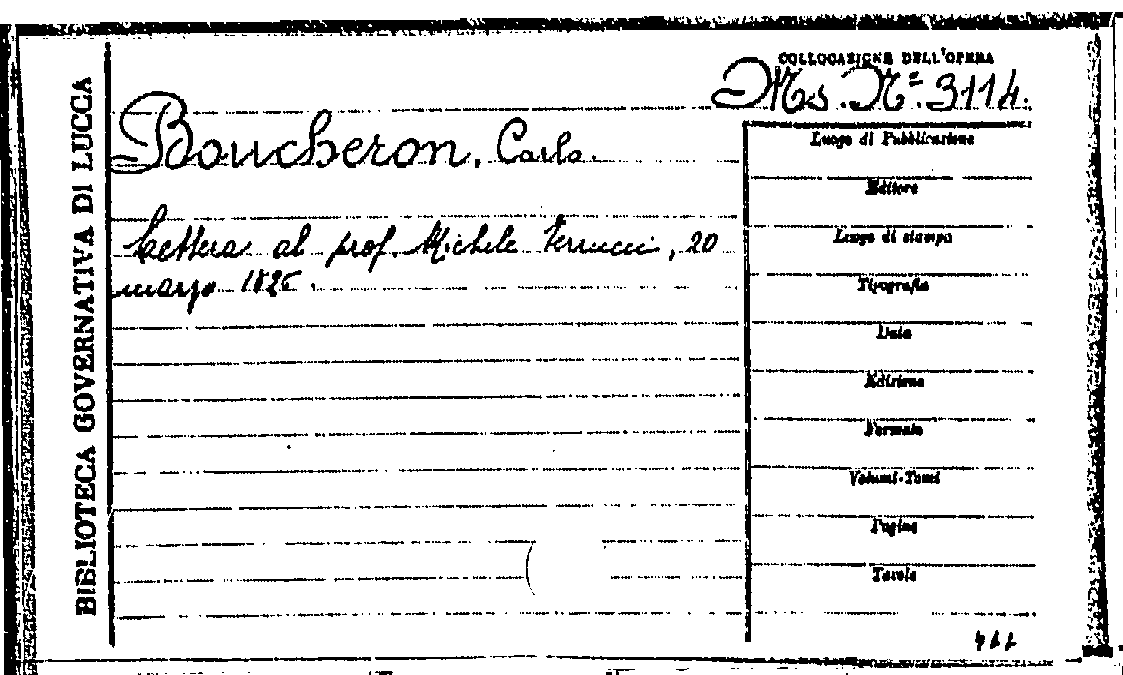 BIBLIOTECA GOVERNATIVA DI LUCCA
COLLOCAZIONE DELL'OPERA
Ms. Nº 3114.
Boucheron, Carlo.
Lettera al prof. Michele Ferrucci, 20
marzo
Luogo di Pubblicazione
Editore
Luogo di stampa
Tipografia
Data
Edizione
Formato
Volumi-Tomi
Pagine
Tavole